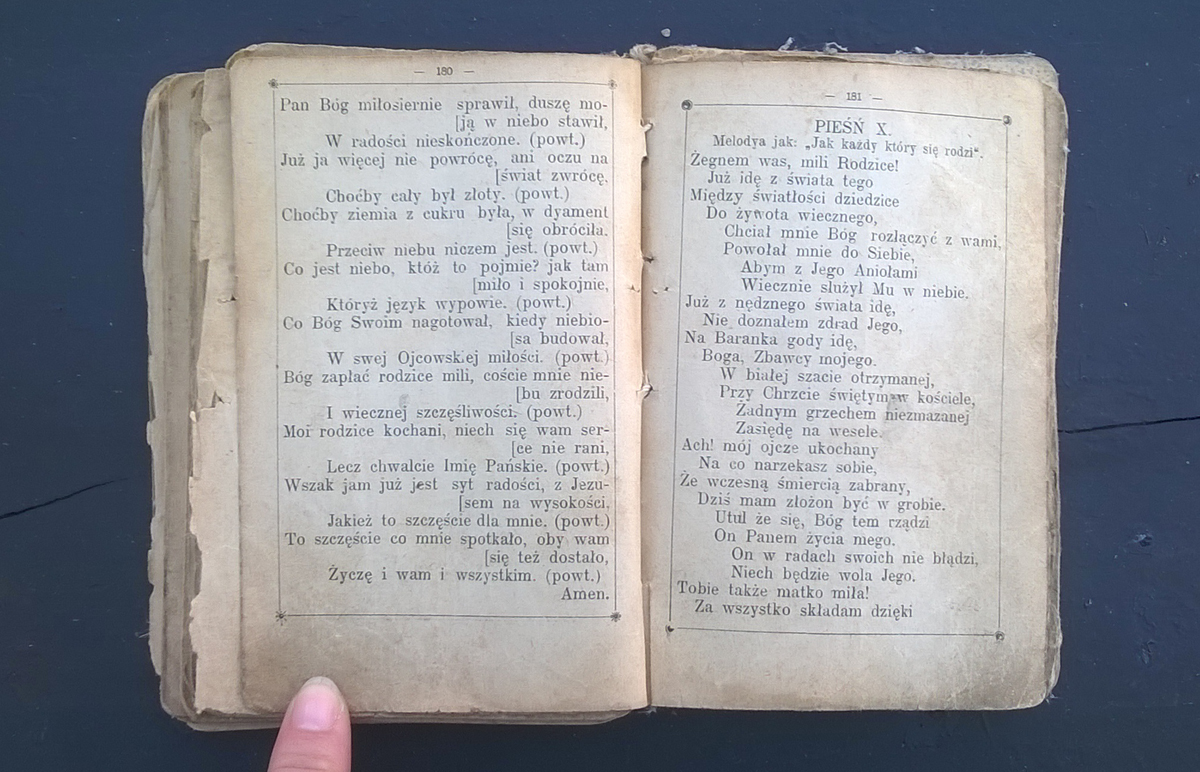 — 180 —
Pan Bóg miłosiernie sprawił, duszę mo-
[ją w niebo stawił,
W radości nieskończone. (powt.)
Już ja więcej nie powrócę, ani oczu na
[świat zwrócę,
Choćby cały był złoty. (powt.)
Choćby ziemia z cukru była, w dyament
[się obróciła.
Przeciw niebu niczem jest. (powt.)
Co jest niebo, któż to pojmie? jak tam
[miło i spokojnie,
Któryż język wypowie. (powt.)
Co Bóg Swoim nagotował, kiedy niebio-
[sa budował,
W swej Ojcowskiej miłości. (powt.)
Bóg zapłać rodzice mili, coście mnie nie-
[bu zrodzili,
I wiecznej szczęśliwości. (powt.)
Moi rodzice kochani, niech się wam ser-
[ce nie rani,
Lecz chwalcie Imię Pańskie. (powt.)
Wszak jam już jest syt radości, z Jezu-
[sem na wysokości.
Jakież to szczęście dla mnie. (powt.)
To szczęście co mnie spotkało, oby wam
[się też dostało,
Życzę i wam i wszystkim. (powt.)
Amen.
— 181 —
PIEŚŃ X.
Melodya jak: „Jak każdy który się rodzi“.
Żegnem was, mili Rodzice!
Już idę z świata tego
Między światłości dziedzice
Do żywota wiecznego,
Chciał mnie Bóg rozłączyć z wami,
Powołał mnie do Siebie,
Abym z Jego Aniołami
Wiecznie służył Mu w niebie.
Już z nędznego świata idę,
Nie doznałem zdrad Jego,
Na Baranka gody idę,
Boga, Zbawcy mojego.
W białej szacie otrzymanej,
Przy Chrzcie świętym w kościele,
Żadnym grzechem niezmazanej
Zasiędę na wesele.
Ach! mój ojcze ukochany
Na co narzekasz sobie,
Że wczesną śmiercią zabrany,
Dziś mam złożon być w grobie.
Utul że się, Bóg tem rządzi
On Panem życia mego.
On w radach swoich nie błądzi,
Niech będzie wola Jego.
Tobie także matko miła!
Za wszystko składam dzięki